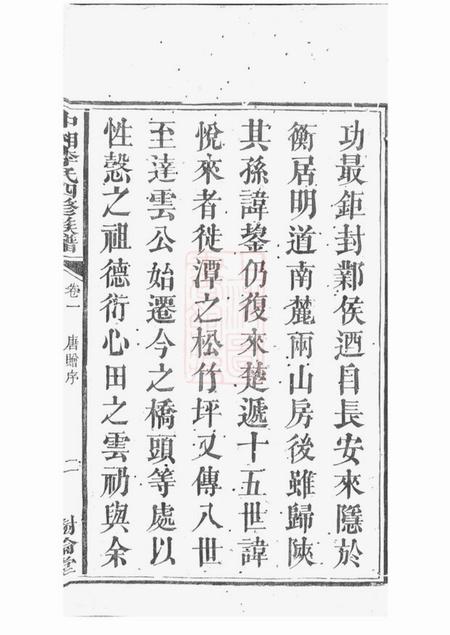 功最鉅封鄴侯迺自長安來隱於
衡居明道南麓兩山房後雖歸陝
其孫諱鋆仍復來楚遞十五世諱
悅來者徙潭之松竹坪又傳八世
至達雲公始遷今之橋頭等處以
性慤之祖德衍心田之雲礽與余
中湘李氏四修族譜
卷一 唐贈序
二